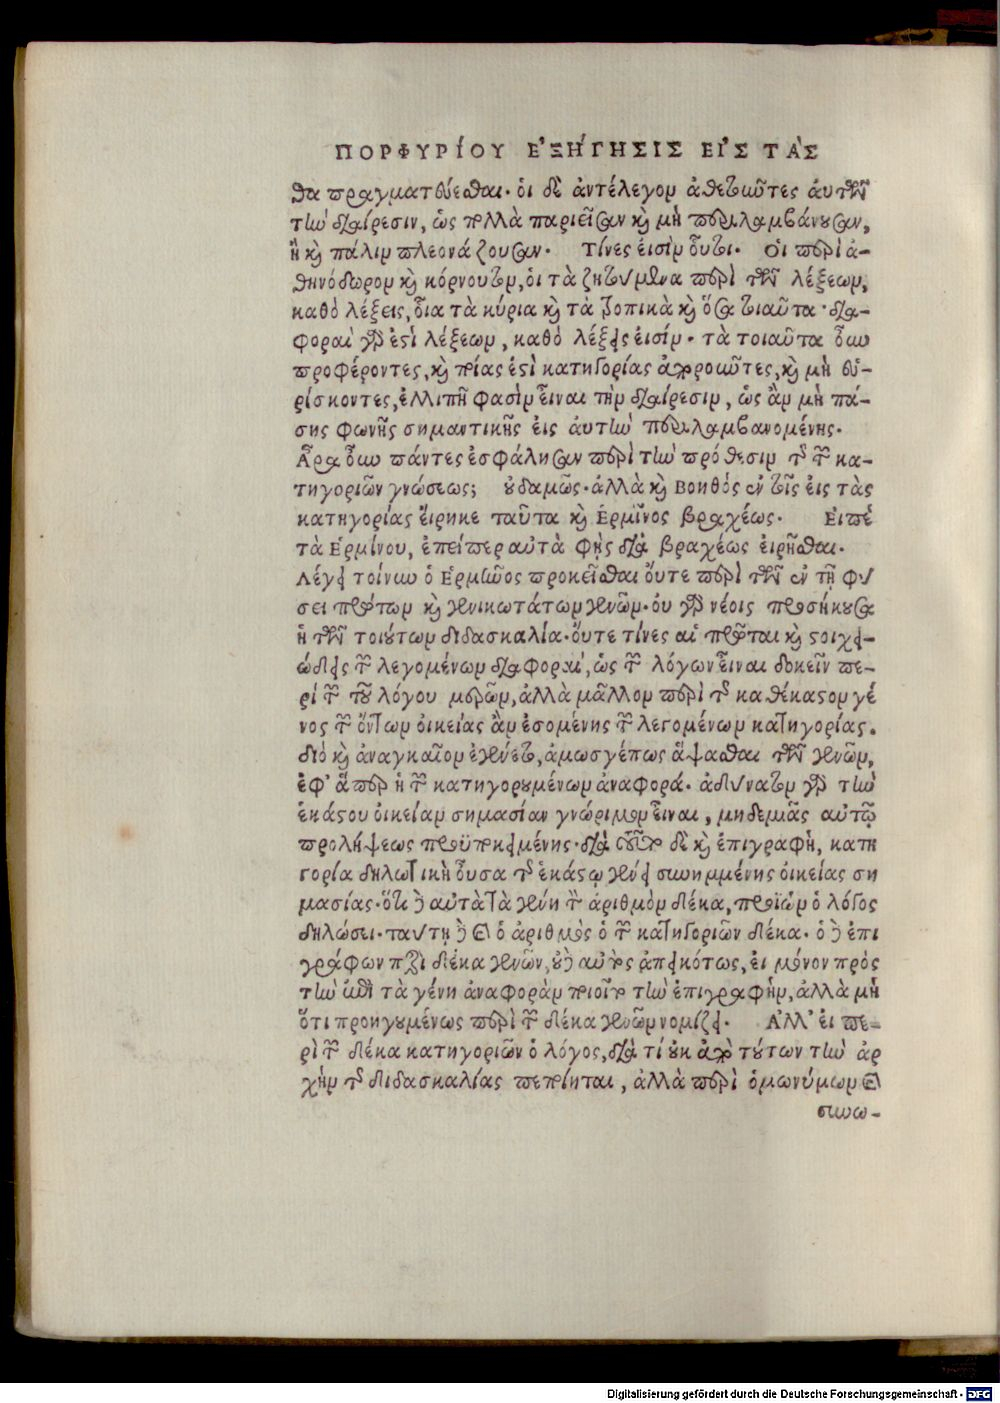 ΠΟΡΦΥΡΙΟΥ ΕΞΗΓΗΣΙΣ ΕΙΣ ΤΑΣ
θαι πραγματεύεσθαι. οἱ δὲ ἀντέλεγον ἀθετοῦντες αὐτῶν
τὴν διαίρεσιν, ὡς πολλὰ παριεῖσαν καὶ μὴ περιλαμβάνουσαν,
ἢ καὶ πάλιν πλεονάζουσαν. Τίνες εἰσὶν οὗτοι. Οἱ περὶ ἀ-
θηνόδωρον καὶ κόρνουτον, οἱ τὰ ζητούμενα περὶ τῶν λέξεων,
καθὸ λέξεις, οἷα τὰ κύρια καὶ τὰ τροπικὰ καὶ ὅσα τοιαῦτα. δια-
φοραὶ γάρ ἐστι λέξεων, καθὸ λέξεις εἰσίν. τὰ τοιαῦτα οὖν
προφέροντες, καὶ ποίας ἐστὶ κατηγορίας ἀποροῦντες, καὶ μὴ εὑ-
ρίσκοντες, ἐλλιπῆ φασὶν εἶναι τὴν διαίρεσιν, ὡς ἂν μὴ πά-
σης φωνῆς σημαντικῆς εἰς αὐτὴν περιλαμβανομένης.
Ἆρα οὖν πάντες ἐσφάλησαν περὶ τὴν πρόθεσιν τοῦ τῶν κα-
τηγοριῶν γνώσεως; οὐδαμῶς. ἀλλὰ καὶ Βοηθός ἐν τοῖς εἰς τὰς
κατηγορίας εἴρηκε ταῦτα καὶ Ἑρμῖνος βραχέως. Εἰπὲ
τὰ Ἑρμίνου, ἐπείπερ αὐτὰ φῂς διὰ βραχέως εἰρῆσθαι.
Λέγει τοίνυν ὁ Ἑρμῖνος προκεῖσθαι οὔτε περὶ τῶν ἐν τῇ φύ
σει πρώτων καὶ γενικωτάτων γενῶν. οὐ γὰρ νέοις προσήκουσα
ἡ τῶν τοιούτων διδασκαλία. οὔτε τίνες αἱ πρῶται καὶ στοιχει-
ώδεις τῶν λεγομένων διαφοραί, ὡς τῶν λόγων εἶναι δοκεῖν πε-
ρὶ τῶν τοῦ λόγου μερῶν, ἀλλὰ μᾶλλον περὶ τοῦ καθέκαστον γέ
νος τῶν ὄντων οἰκείας ἂν ἐσομένης τῶν λεγομένων κατηγορίας.
διὸ καὶ ἀναγκαῖον ἐγένετο, ἁμωσγέπως ἅψασθαι τῶν γενῶν,
ἐφ' ἅπερ ἡ τῶν κατηγορουμένων ἀναφορά. ἀδύνατον γὰρ τὴν
ἑκάστου οἰκείαν σημασίαν γνώριμον εἶναι, μηδεμιᾶς αὐτῷ
προλήψεως προϋποκειμένης. διὰ τοῦτο δὲ καὶ ἐπιγραφὴ, κατη
γορία δηλωτικὴ οὖσα τοῦ ἑκάστῳ γένει συνημμένης οἰκείας ση
μασίας. ὅτι δὲ αὐτὰ τὰ γένη τὸν ἀριθμὸν δέκα, προϊὼν ὁ λόγος
δηλώσει. ταύτῃ δὲ καὶ ὁ ἀριθμὸς ὁ τῶν κατηγοριῶν δέκα. ὁ δὲ ἐπι
γράφων περὶ δέκα γενῶν, οὐδ' αὐτὸς ἀπεικότως, εἰ μόνον πρὸς
τὴν ἐπὶ τὰ γένη ἀναφορὰν ποιοῖτο τὴν ἐπιγραφὴν, ἀλλὰ μὴ
ὅτι προηγουμένως περὶ τῶν δέκα γενῶν νομίζει. Ἀλλ' εἰ πε-
ρὶ τῶν δέκα κατηγοριῶν ὁ λόγος, διὰ τί οὐκ ἀπὸ τούτων τὴν ἀρ
χὴν τῆς διδασκαλίας πεποίηται, ἀλλὰ περὶ ὁμωνύμων καὶ
συνω-
Digitalisierung gefördert durch die Deutsche Forschungsgemeinschaft - DFG